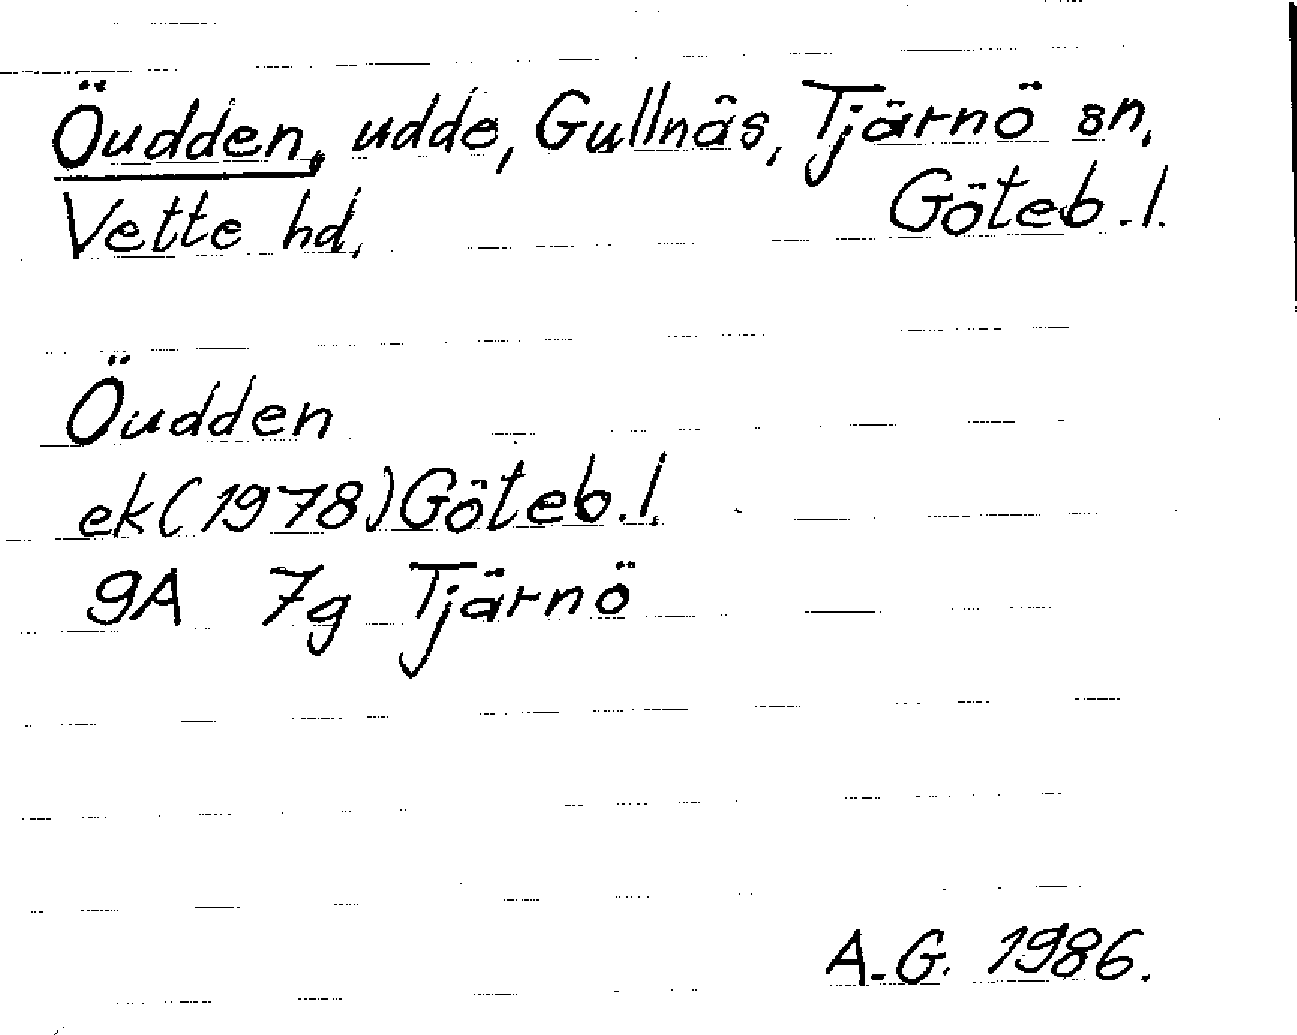 Öudden, udde, Gullnäs, Tjärnö sn,
Vette hd, Göteb.l.
Öudden
ek(1978)Göteb.l.
9A 7g Tjärnö
A.G. 1986.